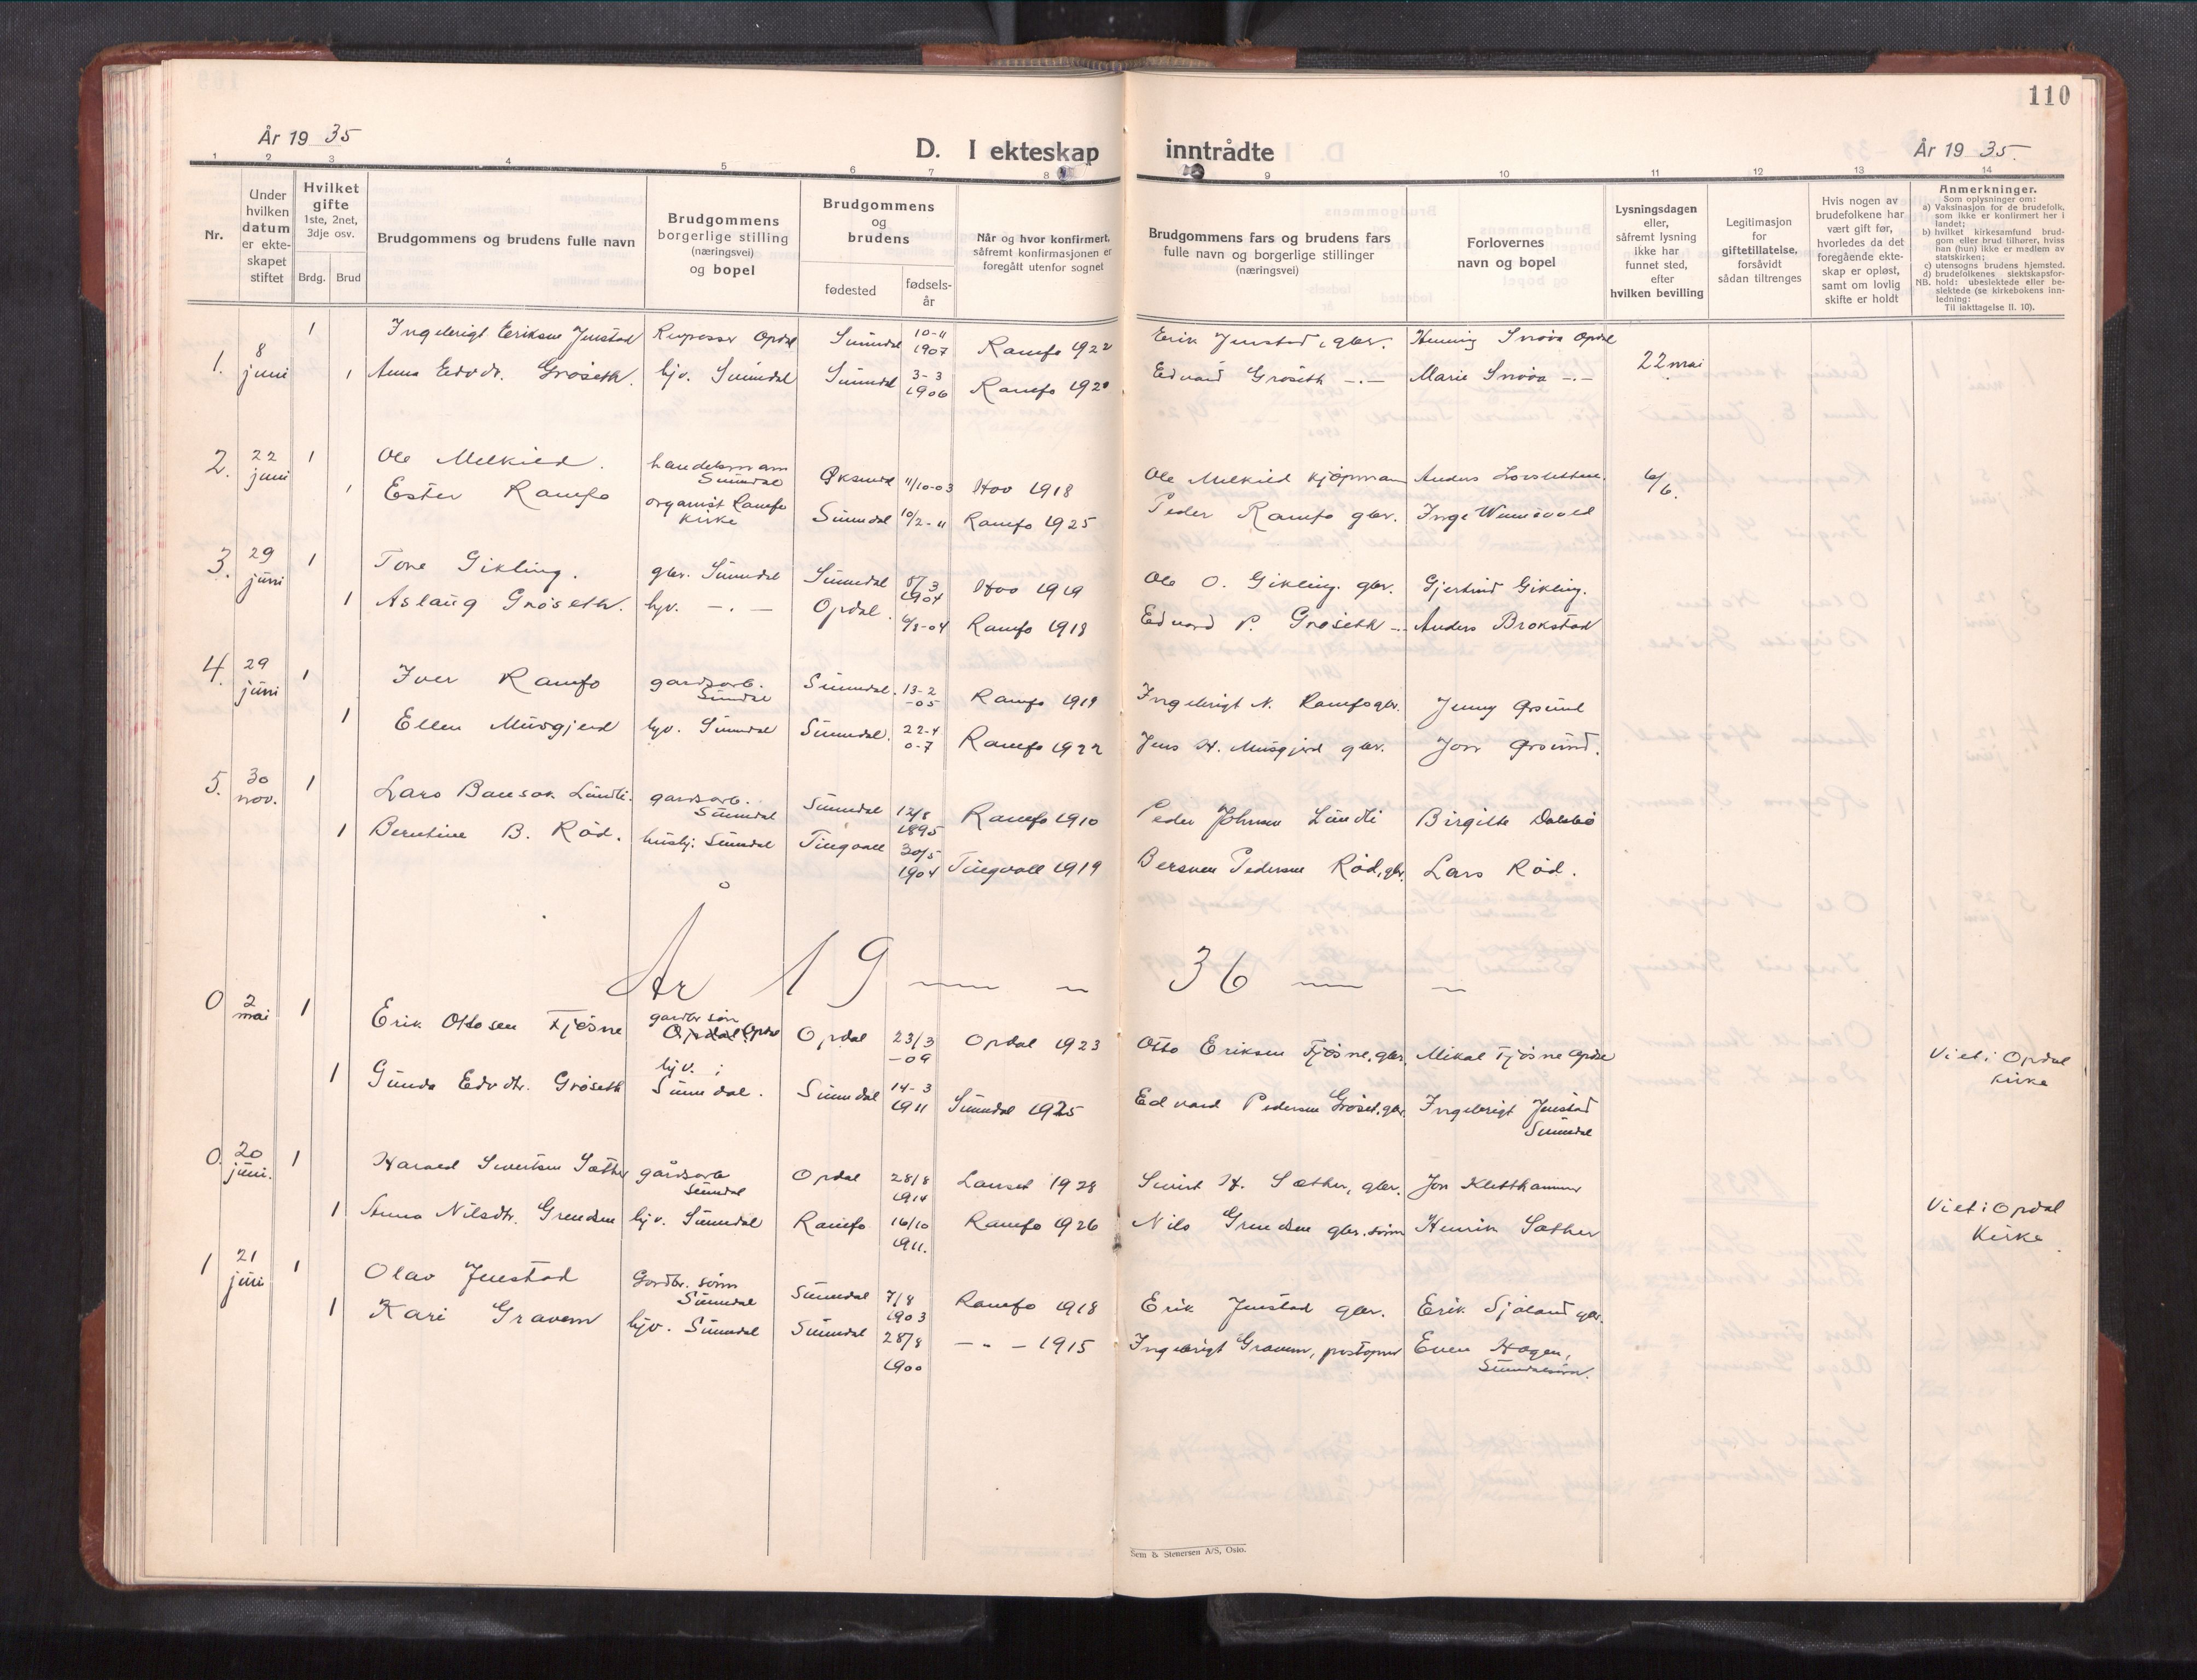 110
År 19 35
D. I ekteskap inntrådte
År 19 35.
1 2 3 4 5 6 7 8 9 10 11 12 13 14
Nr.
Under hvilken datum er ekteskapet stiftet
Hvilket gifte
1ste, 2net, 3dje osv.
Brdg. Brud
Brudgommens og brudens fulle navn
Brudgommens borgerlige stilling (næringsvei) og bopel
Brudgommens og brudens
fødested
fødselsår
Når og hvor konfirmert, såfremt konfirmasjonen er foregått utenfor sognet
Brudgommens fars og brudens fars fulle navn og borgerlige stillinger (næringsvei)
Forlovernes navn og bopel
Lysningsdagen eller, såfremt lysning ikke har funnet sted, efter hvilken bevilling
Legitimasjon for giftetillatelse, forsåvidt sådan tiltrenges
Hvis nogen av brudefolkene har vært gift før, hvorledes da det foregående ekteskap er opløst, samt om lovlig skifte er holdt
Anmerkninger.
Som oplysninger om:
a) Vaksinasjon for de brudefolk, som ikke er konfirmert her i landet;
b) hvilket kirkesamfund brudgom eller brud tilhører, hviss han (hun) ikke er medlem av statskirken;
c) utensogns brudens hjemsted.
d) brudefolkenes slektskapsforhold: ubeslektede eller beslektede (se kirkebokens innledning:
NB.
Til iakttagelse II. 10).
1. 8 juni 1 Ingebrigt Eriksen Jenstad Opdal Sunndal 10-11 1907 Romfo 1922 Erik Jenstad, gbr. Henning Snøva Opdal 22 mai
1 Anna Edvdtr. Grøseth. hjv. Sunndal Sunndal 3-3 1906 Romfo 1920 Edvard Grøseth -.- Marie Snøva -.-
2. 22 juni 1 Ole Melkild. handelsmann Sunndal Øksendal 11/10-03 Hov 1918 Ole Melkild kjøpmann Anders 6/6.
1 Ester Romfo organist Romfo kirke Sunndal 10/2-11 Romfo 1925 Peder Romfo gbr. Inge
3. 29 juni 1 Tore Gikling. gbr. Sunndal Sunndal 3 1904 Hov 1919 Ole O. Gikling. gbr. Gjertrud Gikling.
1 Aslaug Grøseth. hjv. -.- Opdal. 6/8-04 Romfo 1918 Edvard P. Grøseth -.- Anders Brokstad
4. 29 juni 1 Iver Romfo gardsarb. Sunndal Sunndal. 13-2 -05 Romfo 1919 Ingebrigt N. Romfo gbr. Jenny Ørsund
1 Ellen Musgjerd hjv. Sunndal Sunndal. 22-4 0-7 Romfo 1922 Jens H. Musgjerd gbr. Jon Ørsund.
5. 30 nov. 1 Lars Lundli. gardsarb. Sunndal Sunndal 12/8 1895 Romfo 1910 Peder Johnsen Lundli Birgitte
1 Berntine B. Rød. hushj. Sunndal Tingvoll 30/5 1904 Tingvoll 1919 Bersven Pedersen Rød, gbr. Lars Rød.
År 19 — — 36 — —
0 2 mai 1 Erik Ottosen Fjøsne gardbr. søn Opdal Opdal 23/3 -09 Opdal 1923 Otto Eriksen Fjøsne, gbr. Mikal Fjøsne Opdal Viet i Opdal kirke
1 Gunda Edvdtr. Grøseth hjv. i Sunndal. Sunndal 14-3 1911 Sunndal 1925 Edvard Pedersen Grøset, gbr. Ingebrigt Jenstad Sunndal
0. 20 juni. 1 Harald Sivertsen Sæther gårdsarb Sunndal Opdal 28/8 1914 Lønset 1928 Sivert H. Sæther, gbr. Jon Kletthammer Viet i Opdal Kirke.
1 Anna Nilsdtr. Grendsen hjv. Sunndal Romfo 16/10 1911. Romfo 1926 Nils Grendsen gbr. sønn Henrik Sæther
1 21 juni 1 Olav Jenstad Gardbr. sønn Sunndal Sunndal 7/8 1903 Romfo 1918 Erik Jenstad gbr. Erik Sjøland gbr.
1 Kari Gravem hjv. Sunndal Sunndal 28/8 1900 -.- 1915 Ingebrigt Gravem, postopner Even Hagen, Sunndalsøra.
Sem & Stenersen A/S, Oslo.